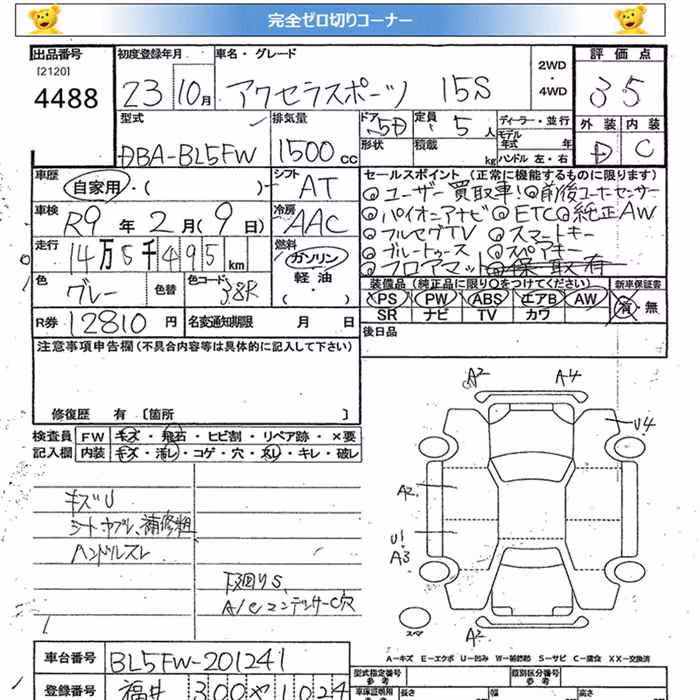 完全ゼロ切りコーナー
出品番号
[2120]
4488
初度登録年月
23 10月
車名・グレード
アクセラスポーツ 15S
2WD
・
4WD
評価点
3 5
外装 内装
D C
型式
DBA-BL5FW
排気量
1500cc
ドア 5D
形状
定員 5人
積載 kg
ディーラー・並行
モデル年式 年
ハンドル 左・右
車歴
自家用・( )
シフト
AT
車検
R9年2月(9日)
冷房
AAC
走行
14万5千495km
燃料
ガソリン
軽油
・( )・
色
グレー
色替
色コード
38R
R券
12810円
名変通知期限 月 日
セールスポイント(正常に機能するものに限ります)
◎ユーザー買取車!◎前後コーナーセンサー
◎パイオニアナビ ◎ETC◎純正AW
◎フルセグTV ◎スマートキー
◎ブルートゥース ◎スペアキー
◎フロアマット
装備品(純正品に限り○をつけてください)
新車保証書
PS PW ABS エアB AW
有・無
SR ナビ TV カワ
後日品
注意事項申告欄(不具合内容等は具体的に記入して下さい)
修復歴 有〔箇所 〕
検査員
記入欄
FW キズ・飛石・ヒビ割・リペア跡・×要
内装 キズ・汚レ・コゲ・穴・スレ・キレ・破レ
キズU
シートカブレ、補修粗
ハンドルスレ
下廻りS
A/CコンデンサーC穴
A2 A4
U4
A2
U1
A3
スペア
A2
A-キズ E-エクボ U-凹み W-補修跡 S-サビ C-腐食 XX-交換済
車台番号
BL5FW-201241
登録番号
福井 300 や 1024
型式指定番号
参考
類別区分番号
参考
車体証明用
参考
長さ
幅
高さ